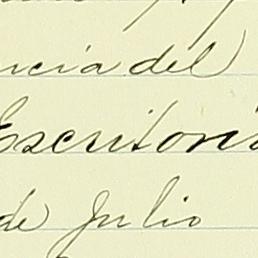 ncia del
Escritori
de Julio